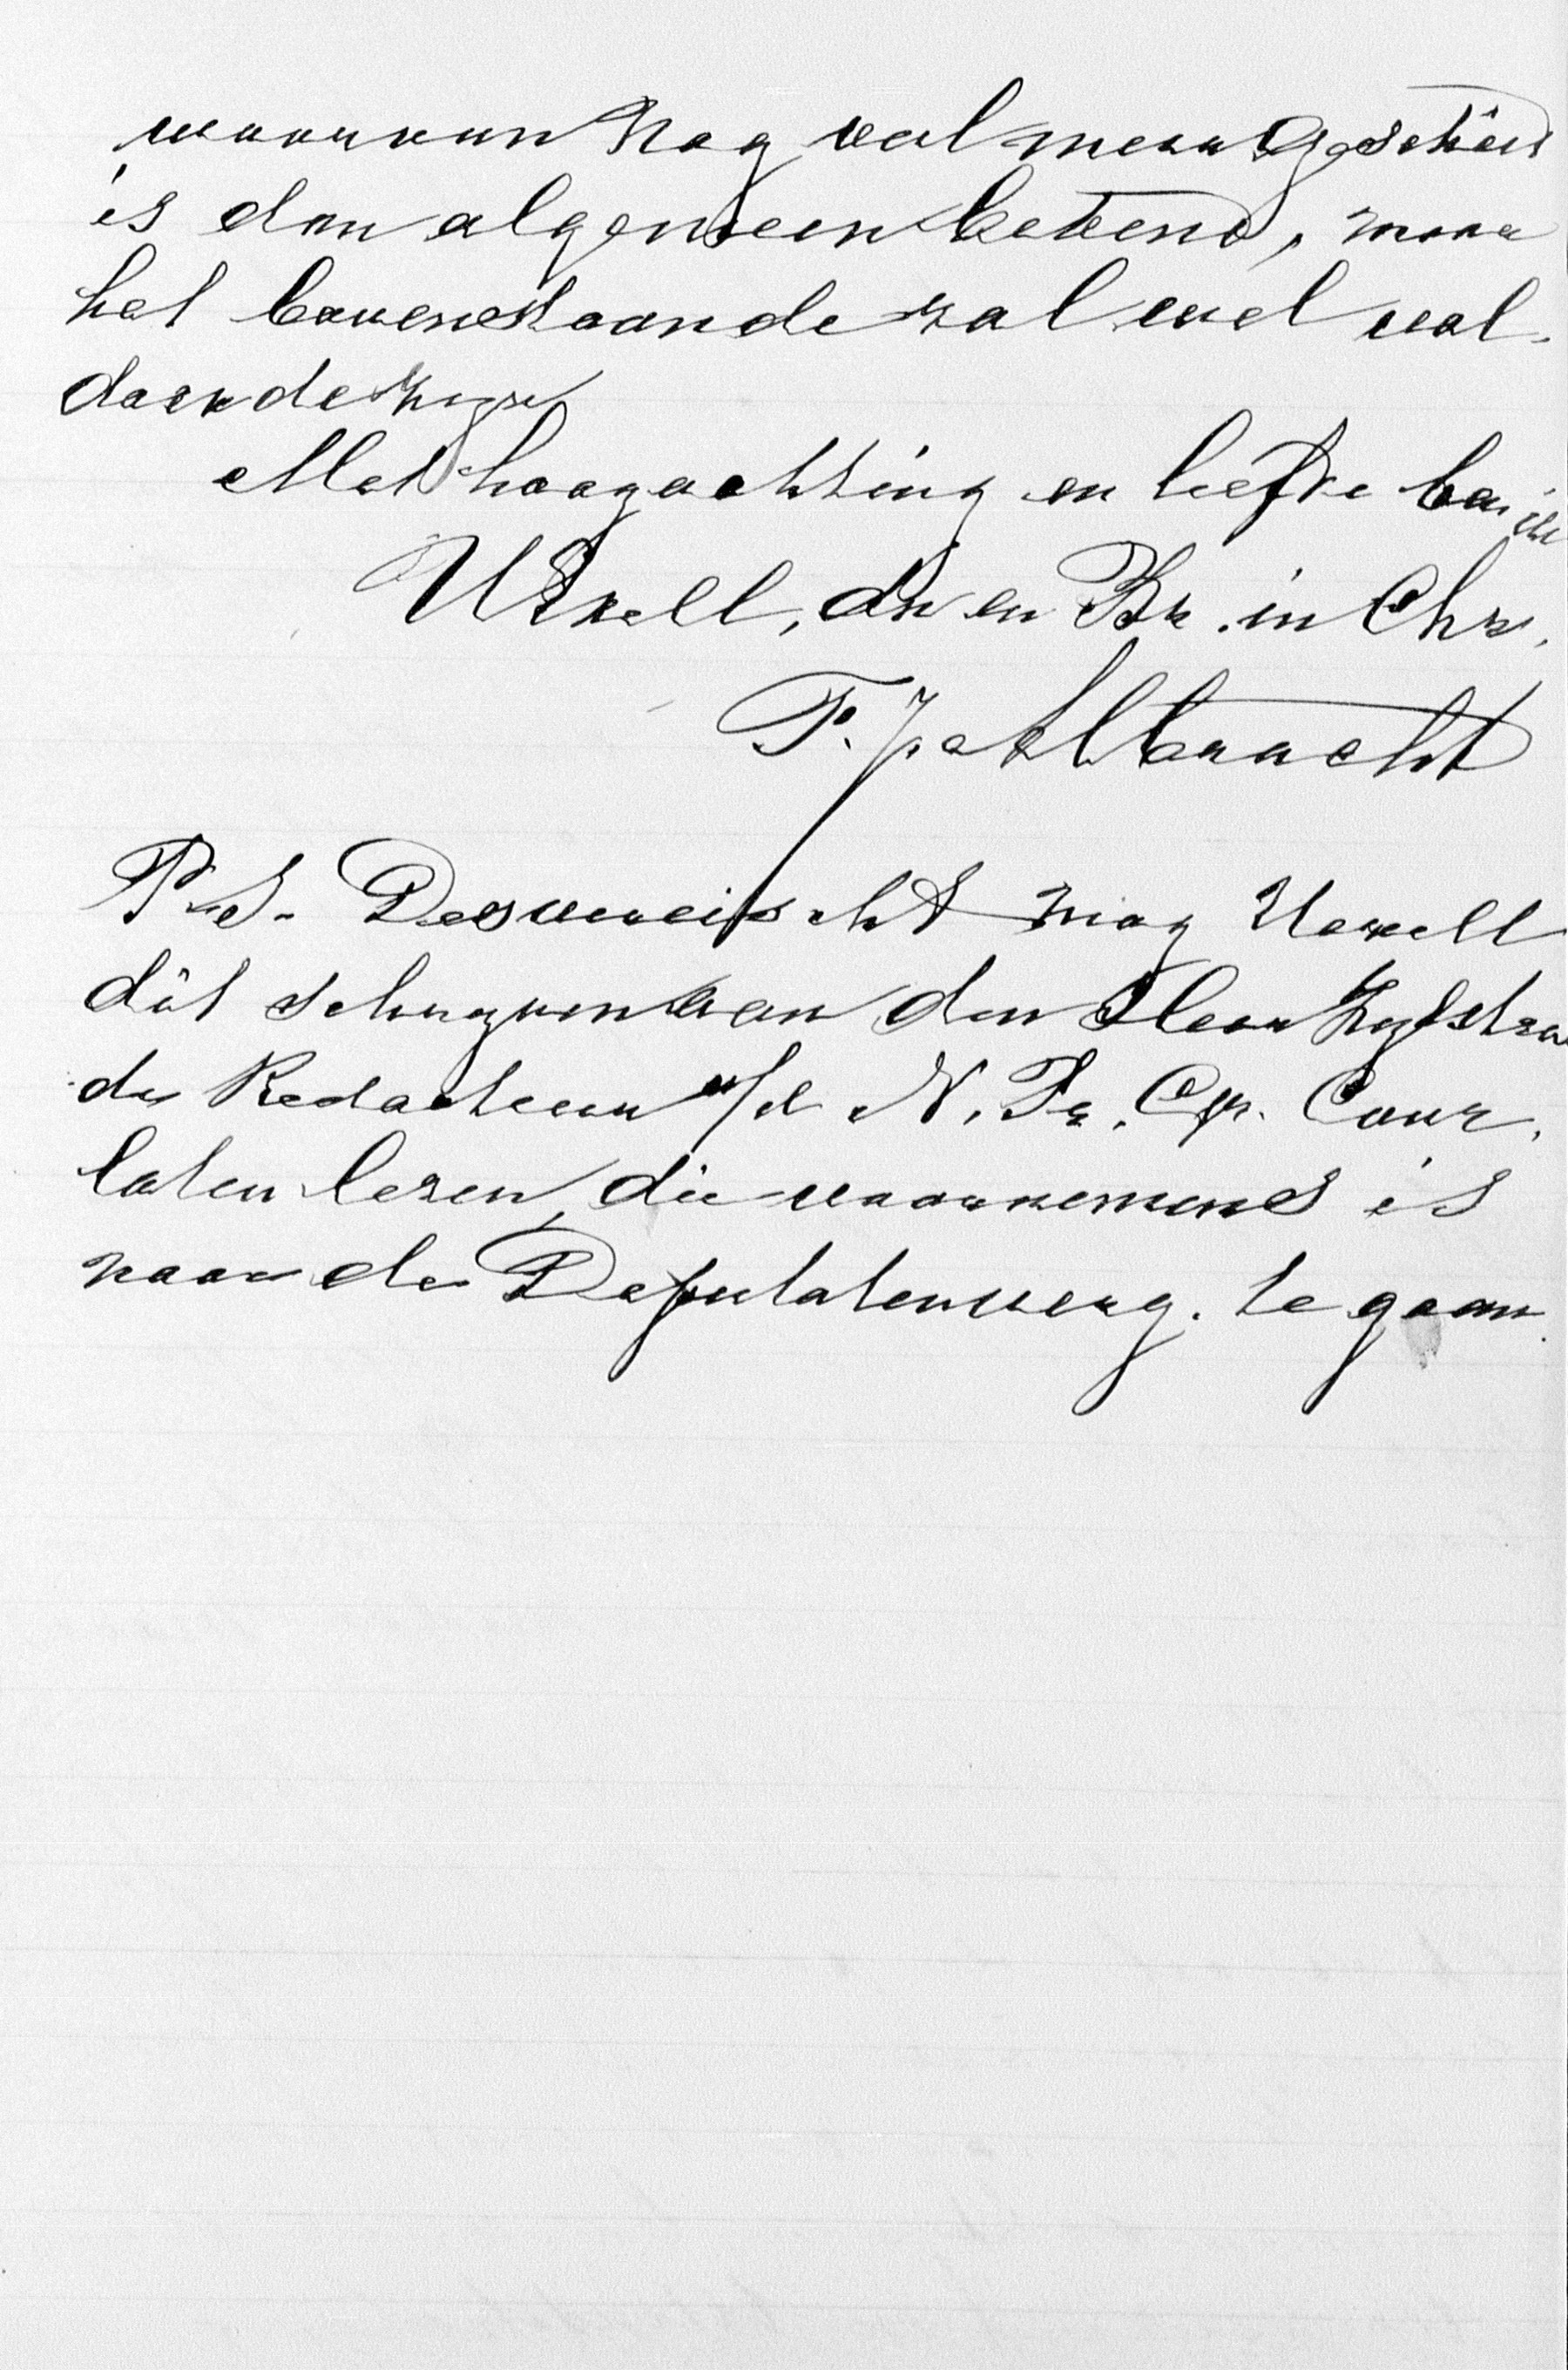 waarvan nog veel meer geschied
is dan algemeen bekend, maar
het bovenstaande zal wel vol-
doende zijn
Met hoogachting en liefde ben ik
UExell, dr en Br. in Chr.
F. Jachtbracht
P.S. Desverkiest mag UExell
dit schrijven aan den Heer Zijlstra
de Redacteur v/d N. Pr. Gr. Cour.
laten lezen, die voornemens is
naar de Deputatenverg. te gaan.